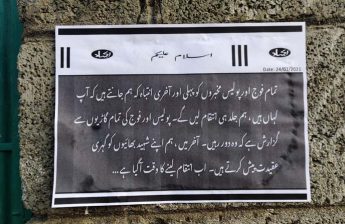 اسلام علیکم
Date: 24/02/2021
تمام فوج اور پولیس مخبروں کو پہلی اور آخری انتباہ کہ ہم جانتے ہیں کہ آپ
کہاں ہیں، ہم جلد ہی انتقام لیں گے۔ پولیس اور فوج کی تمام گاڑیوں سے
گزارش ہے کہ وہ دور رہیں۔ آخر میں، ہم اپنے شہید بھائیوں کو گہری
عقیدت پیش کرتے ہیں۔ اب انتقام لینے کا وقت آگیا ہے...